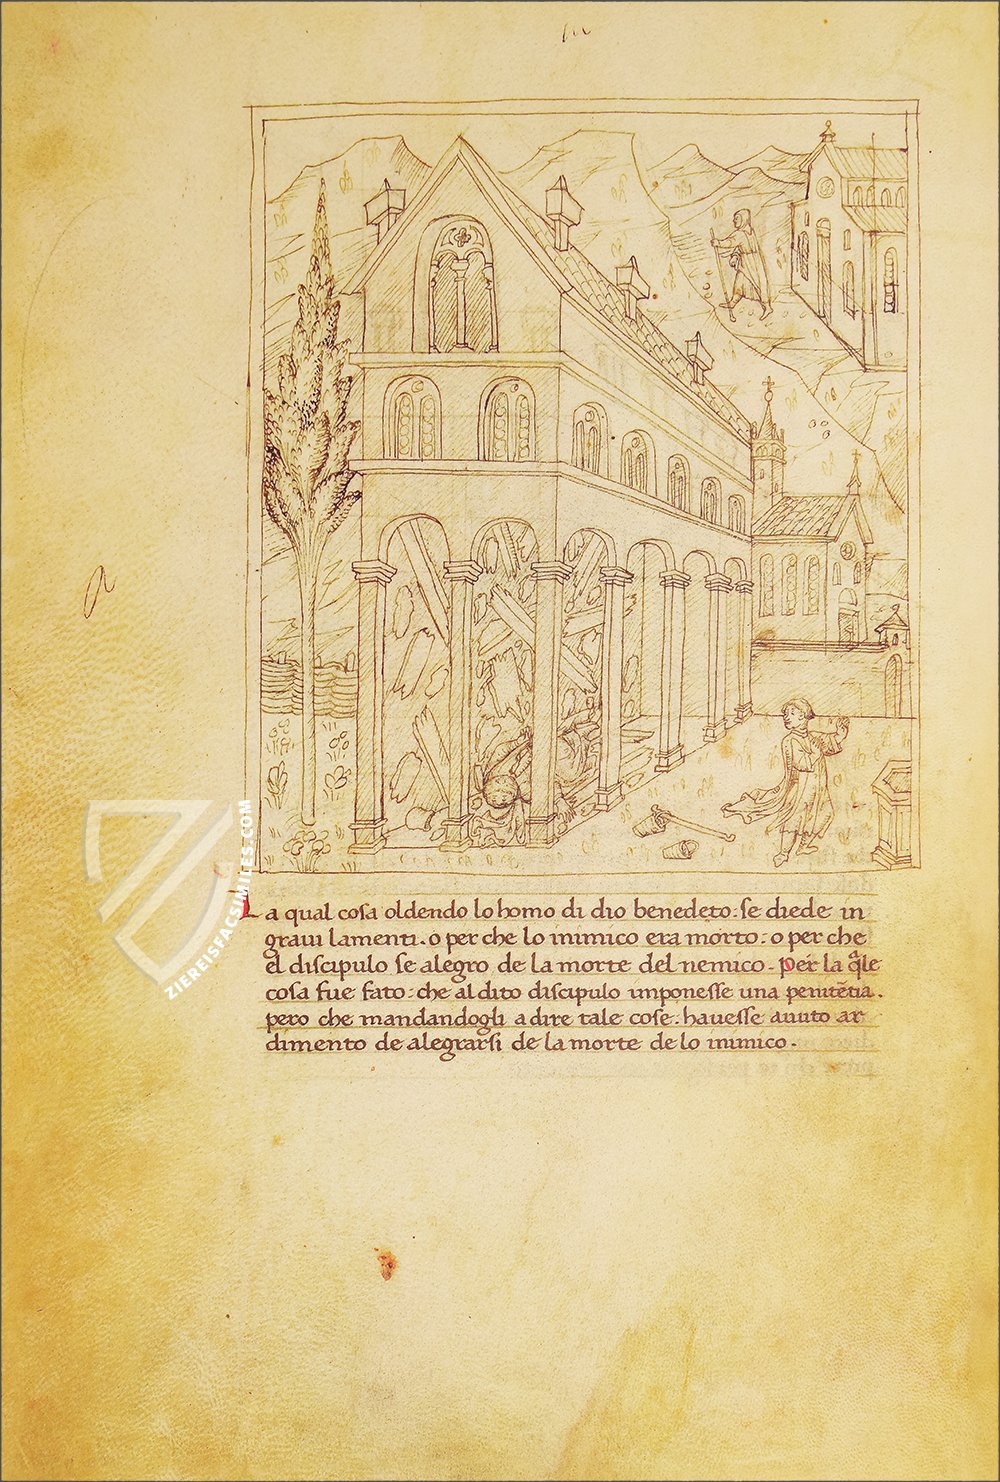 a
ZIEREISFACSIMILES.COM
La qual cosa oldendo lo homo di dio benedeto : se diede in
graui lamenti . o per che lo inimico era morto : o per che
el discipulo se alegro de la morte del nemico . per la q̃le
cosa fue fato : che al dito discipulo imponesse una penitẽtia .
pero che mandandogli a dire tale cose . hauesse auuto ar
dimento de alegrarsi de la morte de lo inimico .